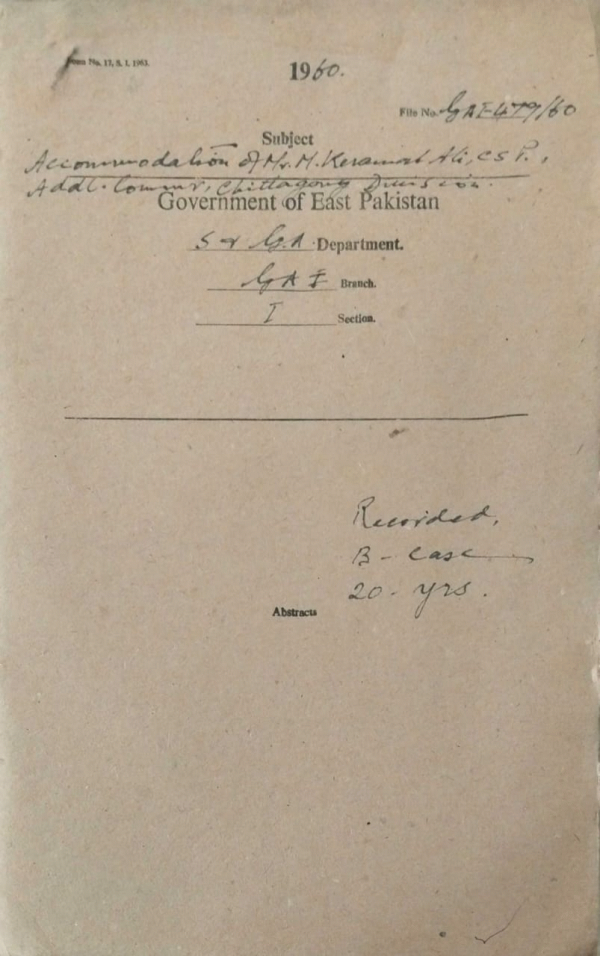 Form No. 17, S. I. 1963.
1960.
File No. GAI-479/60
Subject
Accommodation of Mr. M. Keramat Ali, C S P.,
Addl. Commr, Chittagong Division.
Government of East Pakistan
S & G.A. Department.
GA I Branch.
I Section.
Recorded,
B - Case
20 - yrs.
Abstracts